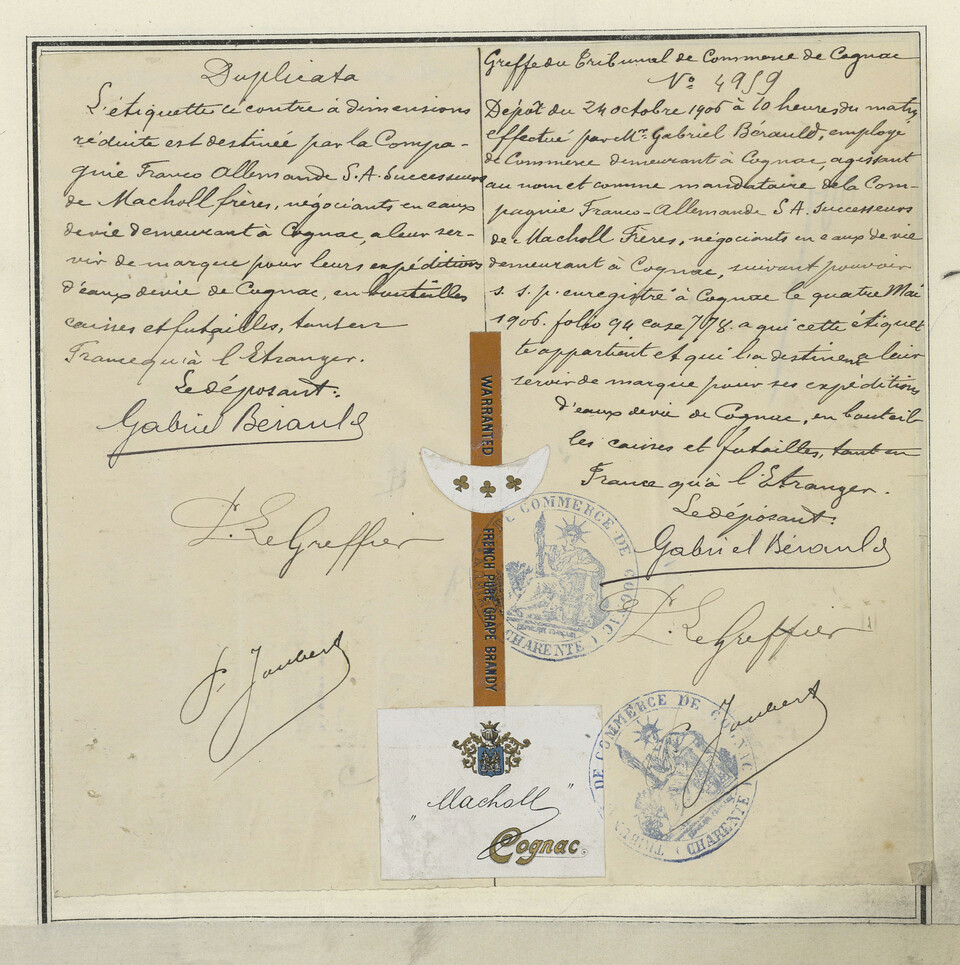 Duplicata
L'étiquette ci contre à dimensions
réduite est destinée par la Compa-
gnie Franco Allemande S.A. Successeurs
de Macholl frères, négociants en eaux
de vie demeurant à Cognac, a leur ser-
vir de marque pour leurs expéditions
d'eaux de vie de Cognac, en bouteilles
caisses et futailles, tant en
France qu'à l'Etranger.
Le déposant:
Gabriel Bérauld
P. Le Greffier
P. Joubert
Greffe du Tribunal de Commerce de Cognac
No 4959
Dépôt du 24 octobre 1906 à 10 heures du matin,
effectué par Mr. Gabriel Bérauld, employé
de Commerce demeurant à Cognac, agissant
au nom et comme mandataire de la Com-
pagnie Franco-Allemande S A. Successeurs
de Macholl Frères, négociants en eaux de vie
demeurant à Cognac, suivant pouvoir
s. s. p. enregistré à Cognac le quatre Mai
1906. folio 94 case 778. a qui cette étiquet
te appartient et qui l'a destinent a leur
servir de marque pour ses expéditions
d'eaux de vie de Cognac, en bouteil
les caisses et futailles, tant en
France qu'à l'Etranger.
Le déposant:
Gabriel Bérauld
P. Le Greffier
Joubert
WARRANTED
FRENCH PURE GRAPE BRANDY
"Macholl"
Cognac.
COMMERCE DE COGNAC
(CHARENTE)
DE COMMERCE DE COGNAC
(CHARENTE)